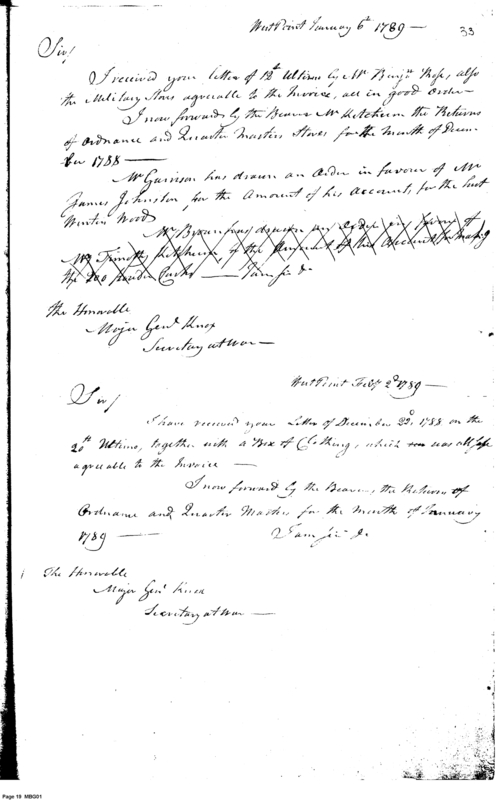 West Point January 6th 1789 —
33
Sir/
I received your letter of 12th Ultimo by Mr Benjn also
the Military Stores agreeable to the Invoice, all in good Order —
I now forward by the Bearer Mr Ketchum the Returns
of Ordnance and Quarter Masters Stores for the Month of Decem-
ber 1788 —
Mr Garrison has drawn an Order in favour of Mr
James Johnston, for the Amount of his Account, for the last
Winter Wood
Mr drawn an Order in favour of
Mr Timothy Ketchum, of the Amount of his Accounts for making
the 200 Casks — I am Sir &
The Honorable
Major Genl Knox
Secretary at War —
West Point Feby 2d 1789 —
Sir/
I have received your Letter of December 22d, 1788 on the
20th Ultimo, together with a Box of Clothing, which was all safe
agreeable to the Invoice —
I now forward by the Bearer, the Return of
Ordnance and Quarter Master for the Month of January
1789 — I am Sir &
The Honorable
Major Genl Knox
Secretary at War —
Page 19 MBG01